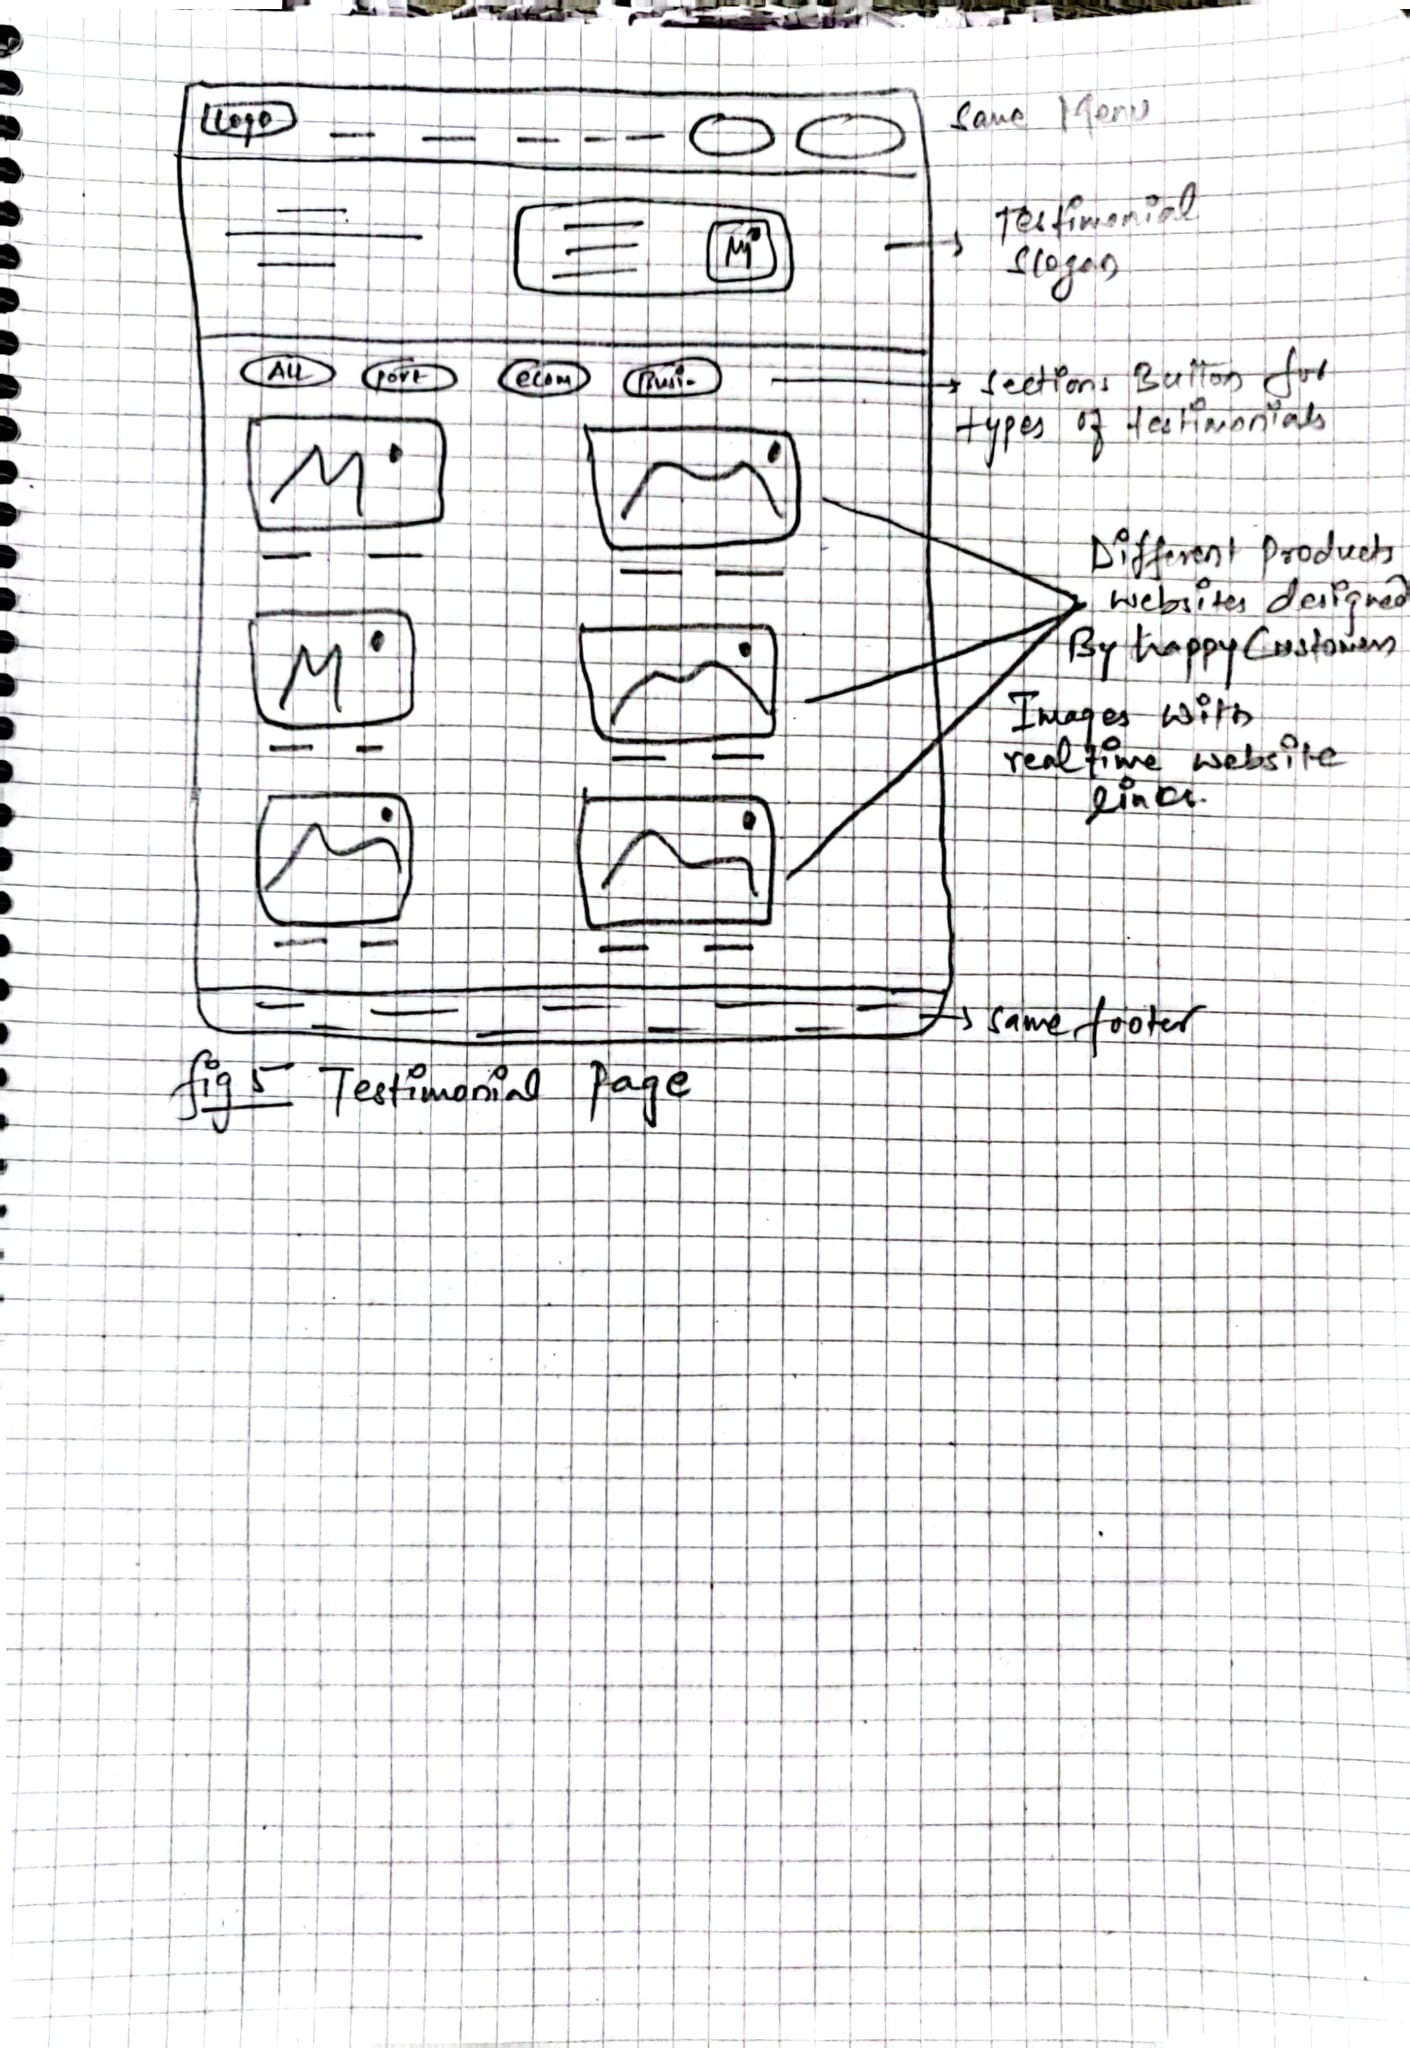 Logo
Same Menu
Testimonial
Slogan
All Port Ecom Busi-
Sections Button for
types of testimonials
Different Products
websites designed
By happy Customers
Images with
real time website
links.
same footer
fig 5 Testimonial Page